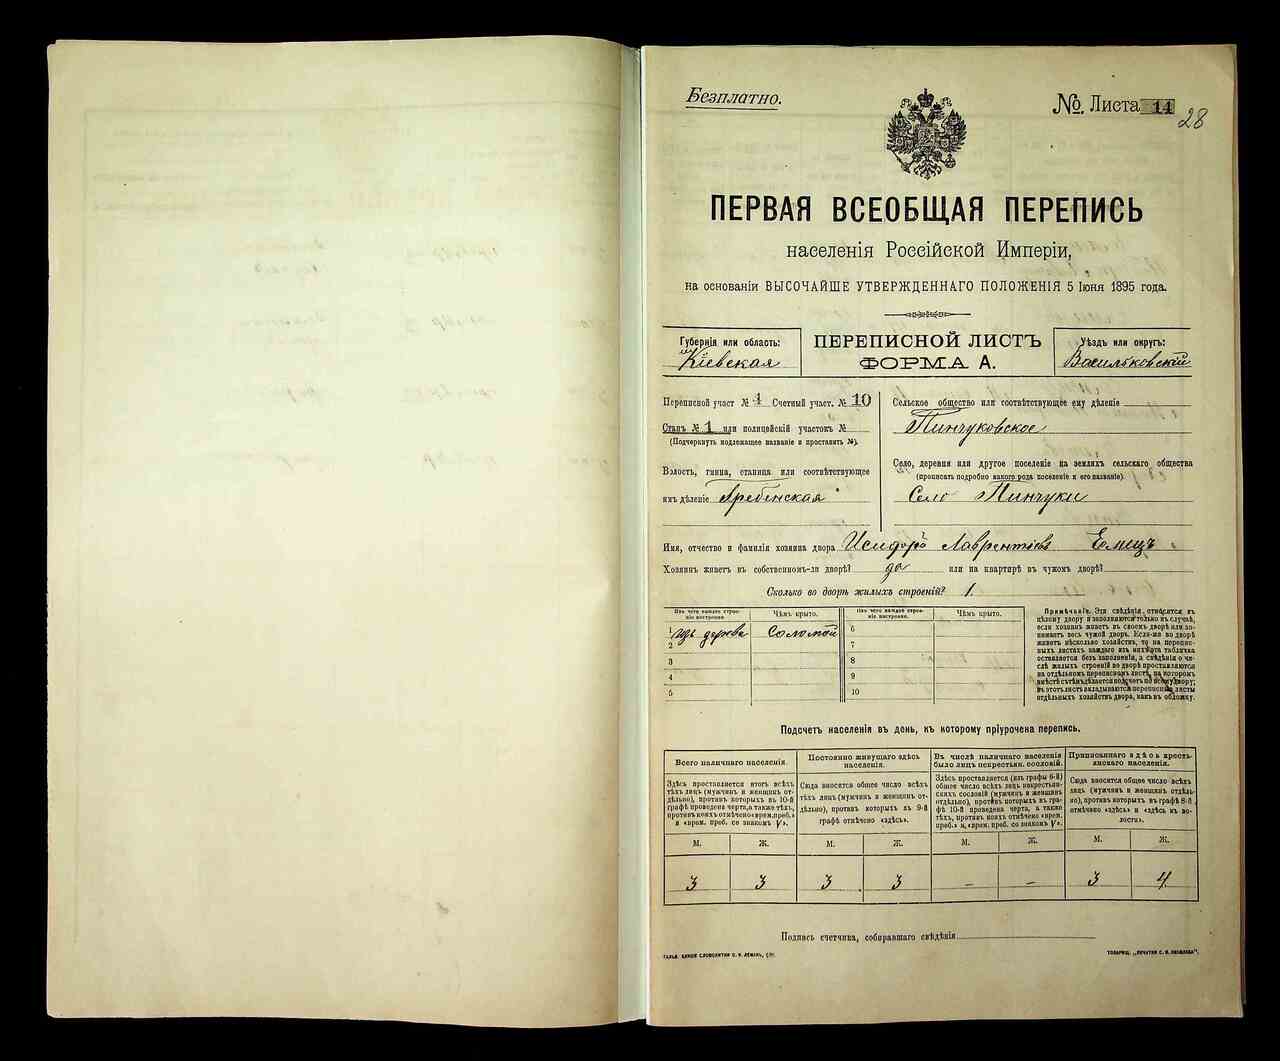 Безплатно.
№ Листа 14
28
ПЕРВАЯ ВСЕОБЩАЯ ПЕРЕПИСЬ
населенія Россійской Имперіи,
на основаніи ВЫСОЧАЙШЕ УТВЕРЖДЕННАГО ПОЛОЖЕНІЯ 5 Іюня 1895 года.
Губернія или область:
Кіевская
ПЕРЕПИСНОЙ ЛИСТЪ
ФОРМА А.
Уѣздъ или округъ:
Васильковскій
Переписной участ № 4 Счетный участ. № 10
Станъ № 1 или полицейскій участокъ №
(Подчеркнуть подлежащее названіе и проставить №).
Волость, гмина, станица или соотвѣтствующее
имъ дѣленіе Гребенская
Сельское общество или соотвѣтствующее ему дѣленіе
Пинчуковское
Село, деревня или другое поселеніе на земляхъ сельскаго общества
(прописать подробно какого рода поселеніе и его названіе)
Село Пинчуки
Имя, отчество и фамилія хозяина двора Исидоръ Лаврентіевъ Емецъ
Хозяинъ живетъ въ собственномъ-ли дворѣ? да или на квартирѣ въ чужомъ дворѣ?
Сколько во дворѣ жилыхъ строеній? 1.
Изъ чего каждое строеніе построено. Чѣмъ крыто. Изъ чего каждое строеніе построено. Чѣмъ крыто.
1 изъ дерева соломой 6
2 7
3 8
4 9
5 10
Примѣчаніе. Эти свѣдѣнія относятся къ
цѣлому двору и заполняются только въ случаѣ,
если хозяинъ живетъ въ своемъ дворѣ или занимаетъ весь чужой дворъ. Если-же во дворѣ
живетъ нѣсколько хозяйствъ, то на переписныхъ листахъ каждаго изъ нихъ эта табличка
оставляется безъ заполненія, а свѣдѣнія о числѣ жилыхъ строеній во дворѣ проставляются
на отдѣльномъ переписномъ листѣ, на которомъ
вмѣстѣ съ тѣмъ дѣлается подсчетъ по всему двору;
въ этотъ листъ вкладываются переписные листы
отдѣльныхъ хозяйствъ двора, какъ въ обложку.
Подсчетъ населенія въ день, къ которому пріурочена перепись.
Всего наличнаго населенія.
Здѣсь проставляется итогъ всѣхъ
тѣхъ лицъ (мужчинъ и женщинъ отдѣльно), противъ которыхъ въ 10-й
графѣ проведена черта, а также тѣхъ,
противъ коихъ отмѣчено «врем. преб.»
и «врем. преб. со знакомъ V».
Постоянно живущаго здѣсь
населенія.
Сюда вносится общее число всѣхъ
тѣхъ лицъ (мужчинъ и женщинъ отдѣльно), противъ которыхъ въ 9-й
графѣ отмѣчено «здѣсь».
Въ числѣ наличнаго населенія
было лицъ некрестьян. сословій.
Здѣсь проставляется (изъ графы 6-й)
общее число всѣхъ лицъ некрестьянскихъ сословій (мужчинъ и женщинъ
отдѣльно), противъ которыхъ въ графѣ 10-й проведена черта, а также
тѣхъ, противъ коихъ отмѣчено «врем.
преб.» и «врем. преб. со знакомъ V».
Приписаннаго здѣсь крестьянскаго населенія.
Сюда вносится общее число всѣхъ
лицъ (мужчинъ и женщинъ отдѣльно), противъ которыхъ въ графѣ 8-й
отмѣчено «здѣсь» и «здѣсь въ волости».
М. Ж. М. Ж. М. Ж. М. Ж.
3 3 3 3 – – 3 4
Подпись счетчика, собиравшаго свѣдѣнія
ТОВАРИЩ. „ПЕЧАТНИ С. П. ЯКОВЛЕВА".